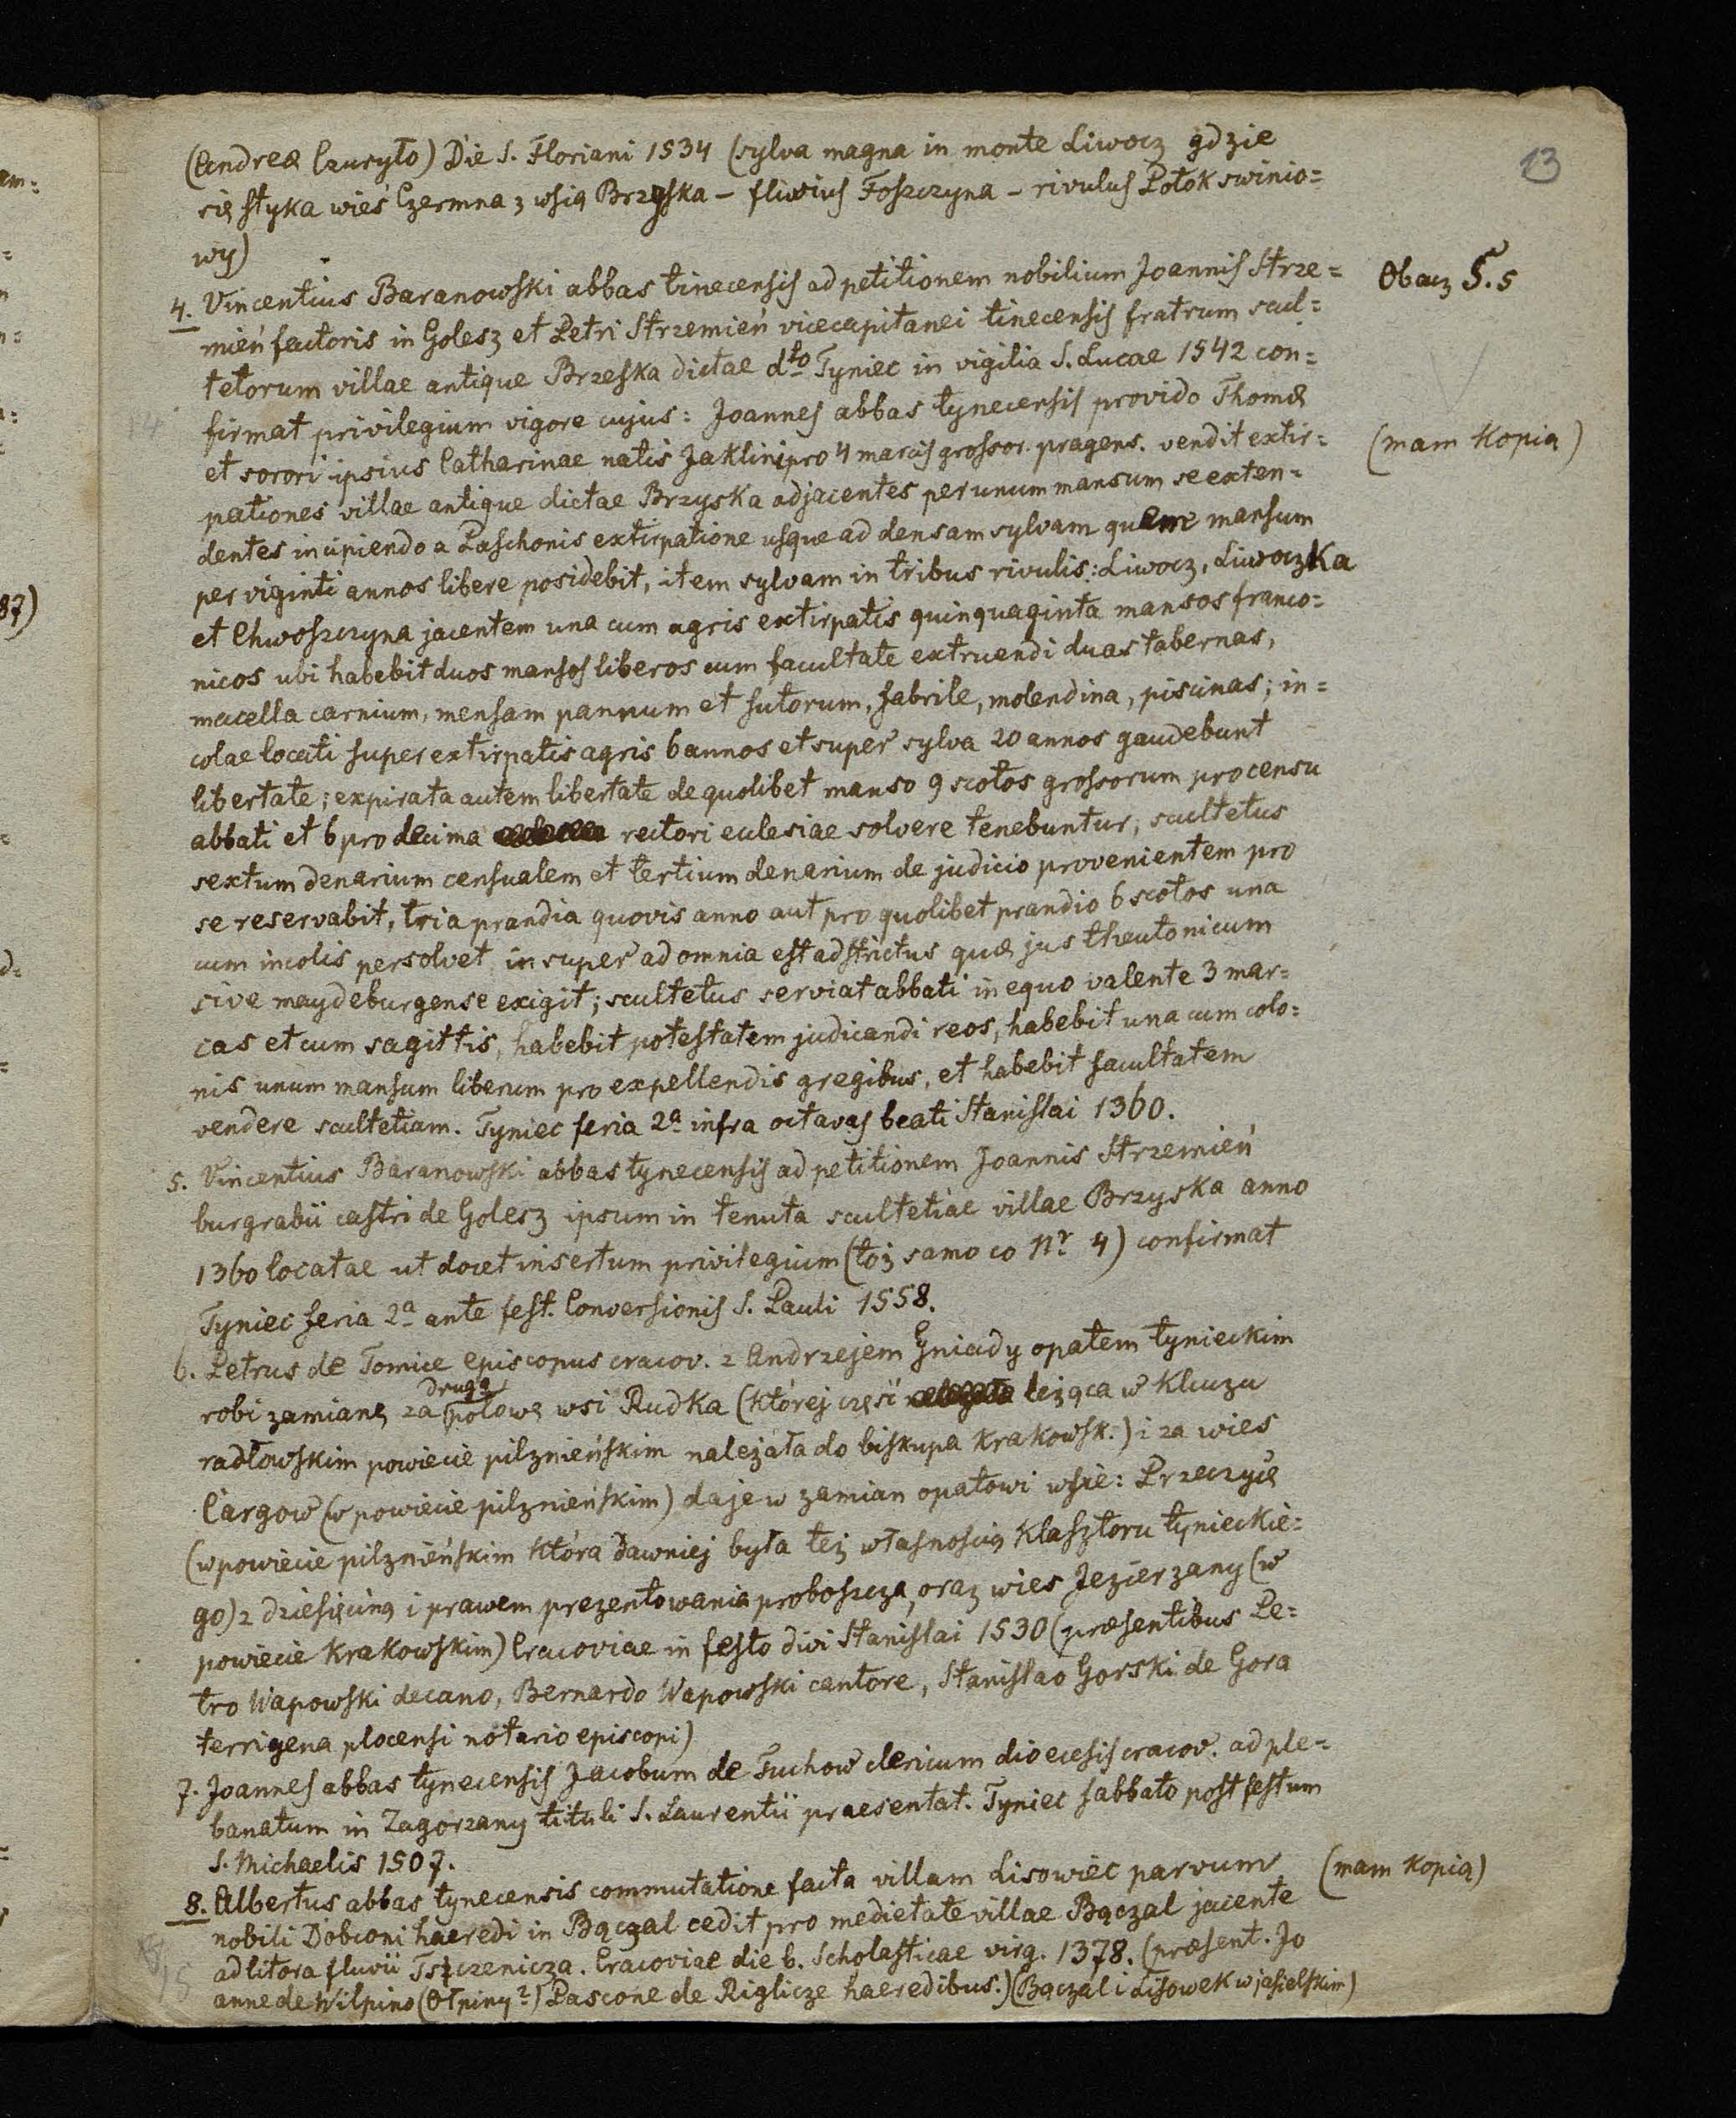 13
(Andreæ Czuryło) Die S. Floriani 1534 (sylva magna in monte Liwocz gdzie
się styka wieś Czermna z wsią Brzyska – fluvius Foszczyna – rivulus Potok swinio=
wy)
4. Vincentius Baranowski abbas tinecensis ad petitionem nobilium Joannis Strze=
Obacz 5.5
mień factoris in Golesz et Petri Strzemień vicecapitanei tinecensis fratrum scul=
tetorum villae antique Brzeska dictae dto Tyniec in vigilia S. Lucae 1542 con=
firmat privilegium vigore cujus: Joannes abbas tynecensis provido Thomæ
14
et sorori ipsius Catharinae natis Jaklini pro 4 marcis grossor. pragens. vendit extir=
(mam Kopią)
pationes villae antique dictae Brzyska adjacentes per unum mansum se exten=
dentes incipiendo a Paschonis extirpatione usque ad densam sylvam quem mansum
per viginti annos libere posidebit, item sylvam in tribus rivulis: Liwocz, Liwoczka
et Chwoszczyna jacentem una cum agris extirpatis quinquaginta mansos franco=
nicos ubi habebit duos mansos liberos cum facultate extruendi duas tabernas,
macella carnium, mensam pannum et sutorum, fabrile, molendina, piscinas; in=
colae locati super extirpatis agris 6 annos et super sylva 20 annos gaudebunt
libertate; expirata autem libertate de quolibet manso 9 scotos grossorum pro censu
abbati et 6 pro decima rectori eclesiae solvere tenebuntur, scultetus
sextum denarium censualem et tertium denarium de judicio provenientem pro
se reservabit, tria prandia quovis anno aut pro quolibet prandio 6 scotos una
cum incolis persolvet, in super ad omnia est adstrictus quæ jus theutonicum
sive maydeburgense exigit; scultetus serviat abbati in equo valente 3 mar=
cas et cum sagittis, habebit potestatem judicandi reos, habebit una cum colo=
nis unum mansum liberum pro expellendis gregibus, et habebit facultatem
vendere scultetiam. Tyniec feria 2a infra octavas beati Stanislai 1360.
5. Vincentius Baranowski abbas tynecensis ad petitionem Joannis Strzemień
burgrabii castri de Golesz ipsum in tenuta scultetiae villae Brzyska anno
1360 locatae ut docet insertum privilegium (toż samo co Nr 4) confirmat
Tyniec feria 2a ante fest. Conversionis S. Pauli 1558.
6. Petrus de Tomice episcopus cracov. z Andrzejem Gniady opatem tynieckim
robi zamianę za drugą połowę wsi Rudka (której część leżąca w Kluczu
radłowskim powiecie pilznieńskim należała do biskupa Krakowsk.) i za wies
Cargow (w powiecie pilznieńskim) daje w zamian opatowi wsie: Przeczycę
(w powiecie pilznieńskim która dawniej była też własnością Klasztoru tynieckie=
go) z dziesięciną i prawem prezentowania proboszcza, oraz wies Jezierzany (w
powiecie Krakowskim) Cracoviae in festo divi Stanislai 1530 (præsentibus Pe=
tro Wapowski decano, Bernardo Wapowski cantore, Stanislao Gorski de Gora
terrigena plocensi notario episcopi)
7. Joannes abbas tynecensis Jacobum de Tuchow clericum dioecesis cracov. ad ple=
banatum in Zagorzany tituli S. Laurentii praesentat. Tyniec sabbato post festum
S. Michaelis 1507.
8. Albertus abbas tynecensis commutatione facta villam Lisowiec parvum
(mam Kopią)
nobili Dobconi haeredi in Bączal cedit pro medietate villae Bączal jacente
ad litora fluvii Tszczenicza. Cracoviae die b. Scholasticae virg. 1378. (præsent. Jo
15
anne de Wilpino (Ołpiny?) Pascone de Riglicze haeredibus.) (Bączal i Lisowek w jasielskim)